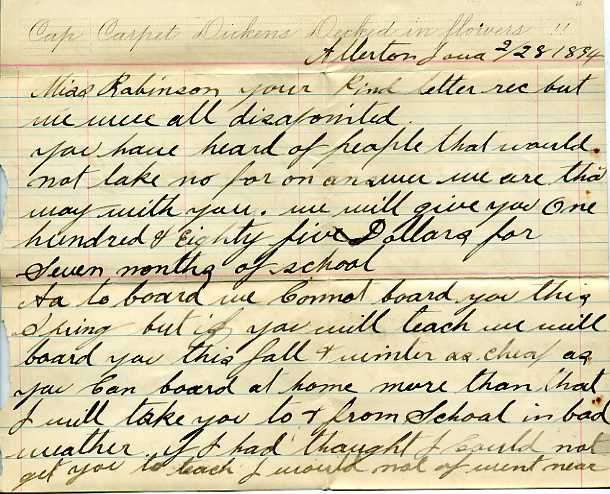 Cap Carpet Dickens Decked in flowers !!
Allerton Iowa 2/28 1894
Miss Rabinson your kind letter rec but
we were all disapointed.
you have heard of people that would
not take no for on answer we are this
way with you. we will give you One
hundred & Eighty five Dollars for
Seven months of school
As to board we Connot board you this
Spring but if you will teach we will
board you this fall & winter as cheap as
you Can board at home more than that
I will take you to & from School in bad
weather. if I had thought I Could not
get you to teach I would not of went near